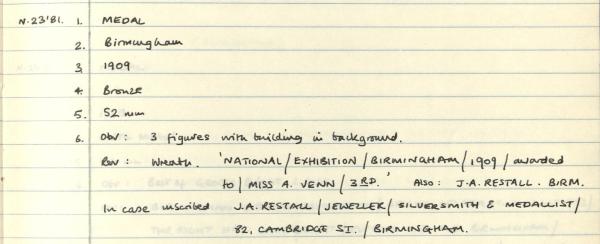 N.23'81. 1. MEDAL
2. Birmingham
3. 1909
4. Bronze
5. 52 mm
6. Obv: 3 figures with building in background.
Rev: Wreath. 'NATIONAL/EXHIBITION/BIRMINGHAM/1909/awarded
to/MISS A. VENN/3RD.' Also: J.A. RESTALL. BIRM.
In case inscribed J.A. RESTALL/JEWELLER/SILVERSMITH & MEDALLIST/
82, CAMBRIDGE ST./BIRMINGHAM.